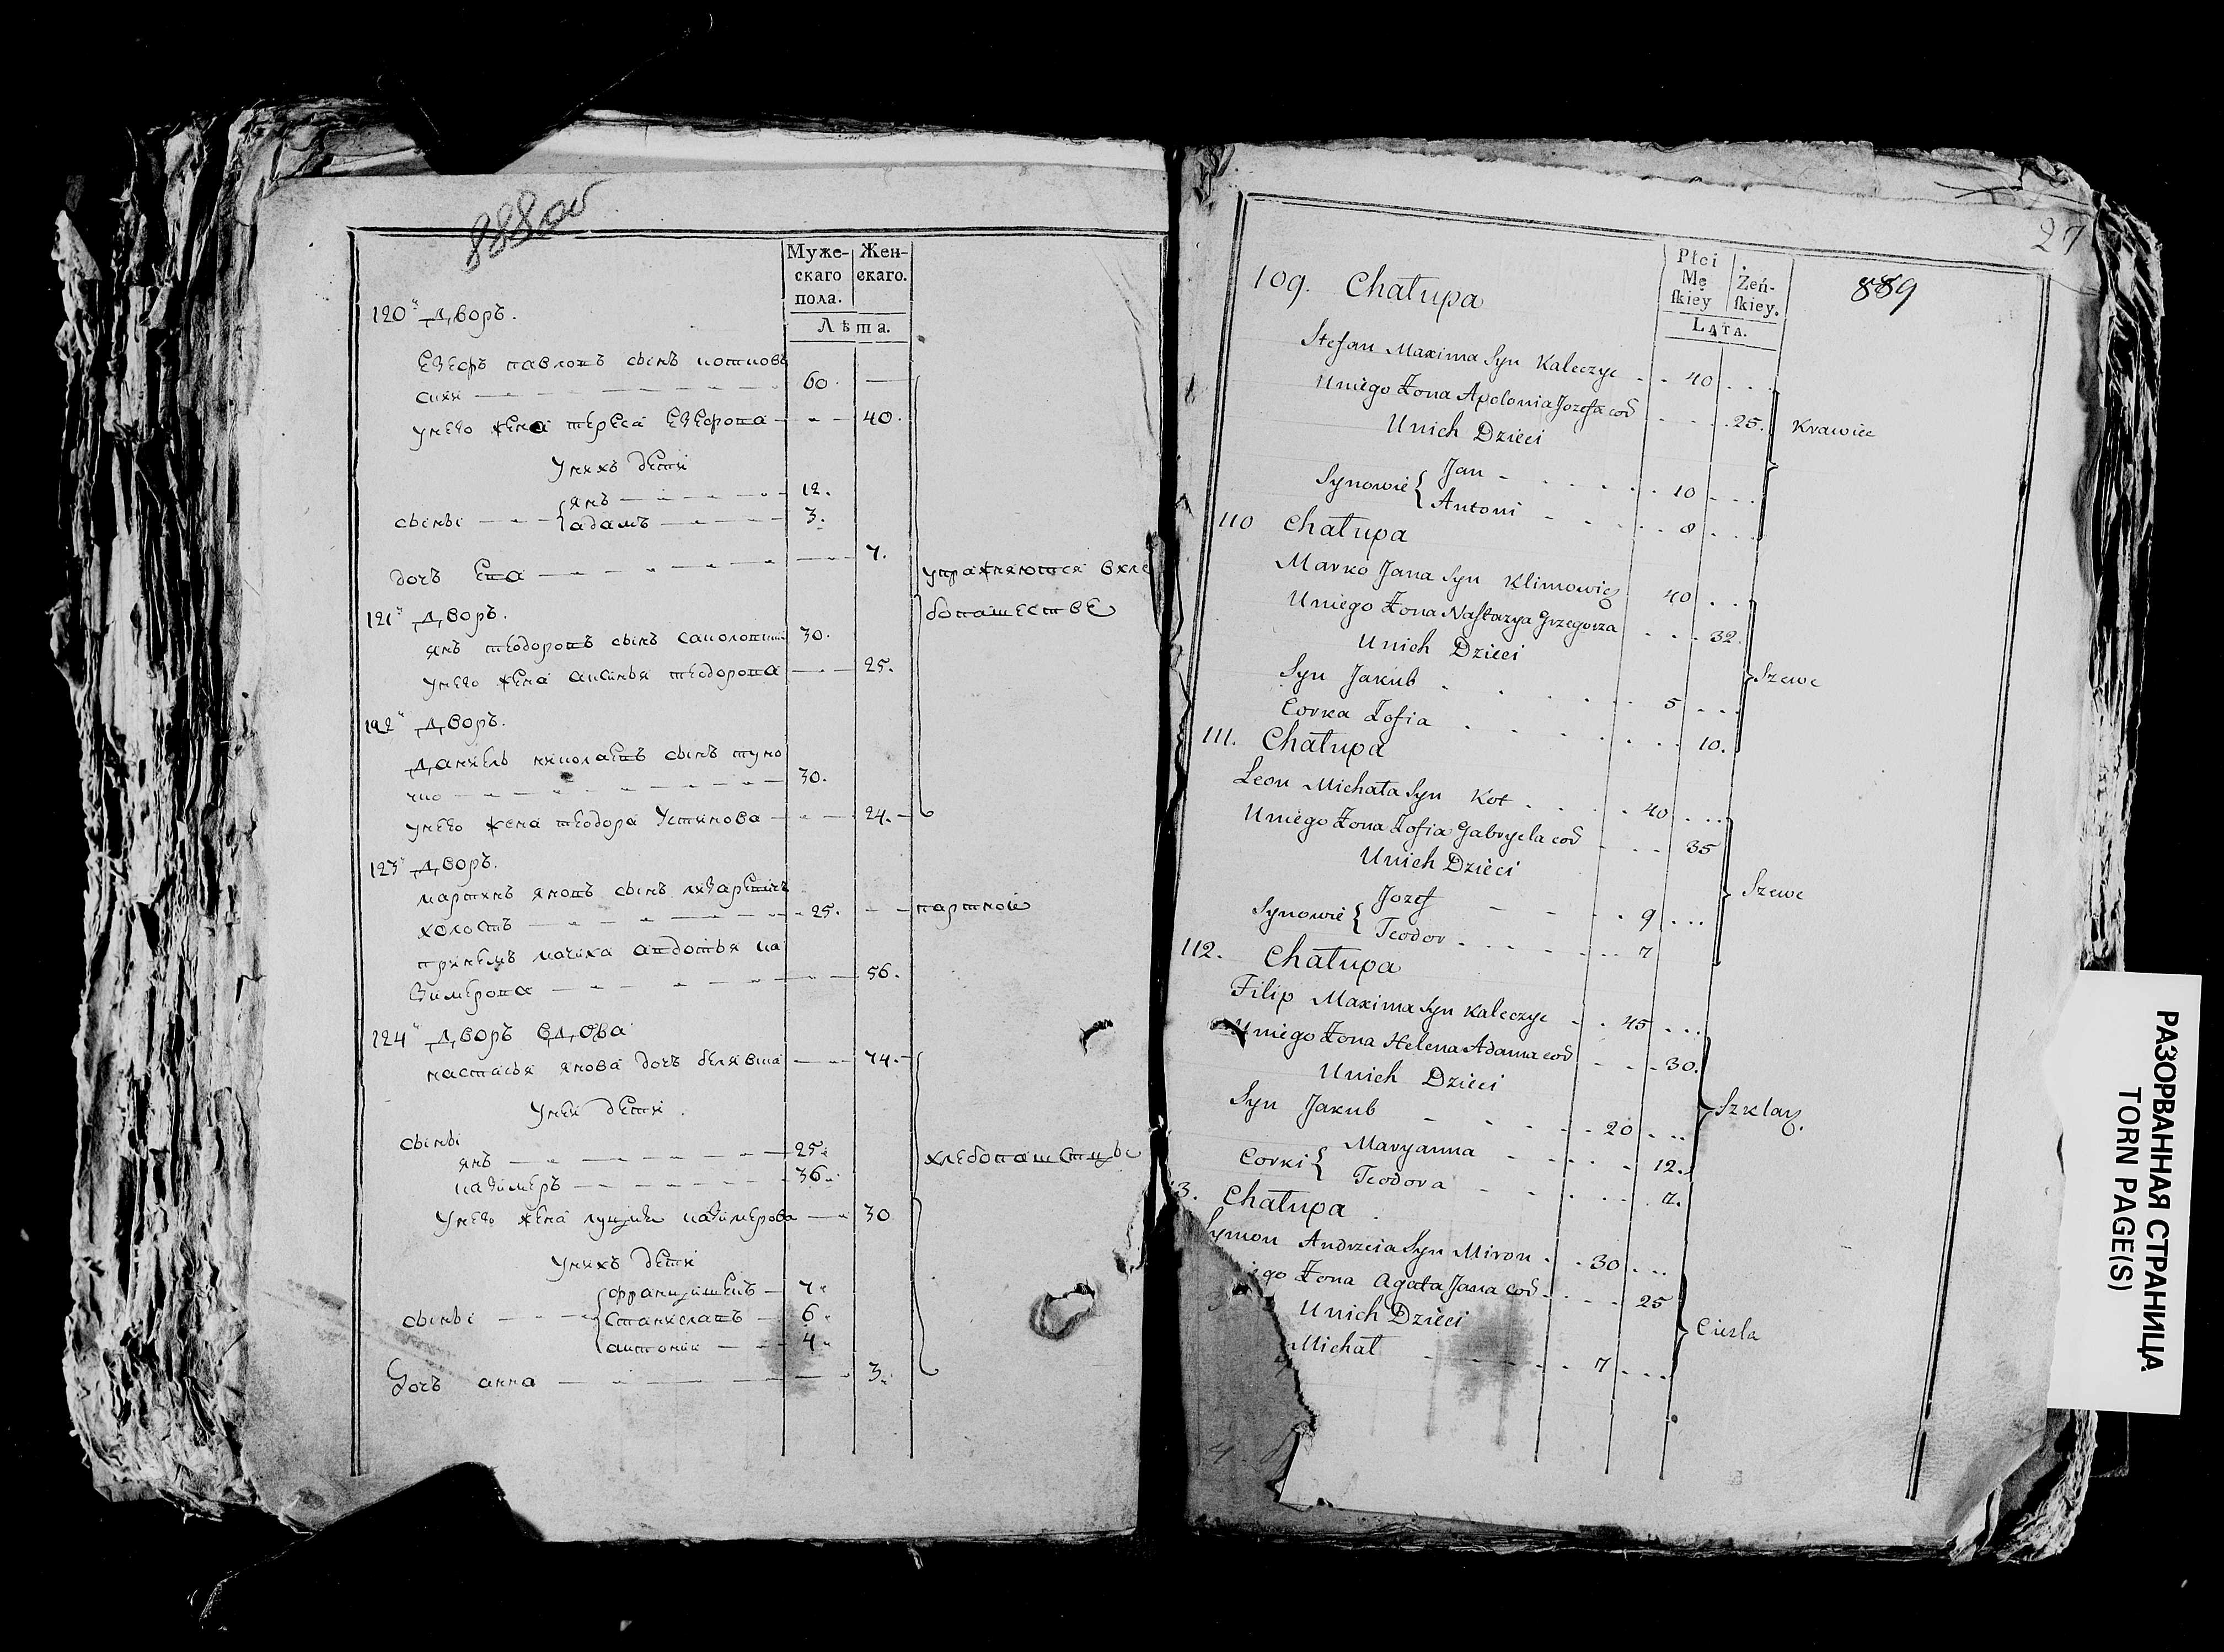 888 об
Муже-
скаго
пола.
Жен-
скаго.
Лѣта.
120й Дворъ.
60. —
унего жена тереса — 40.
Унихъ дети
янъ — 12.
сынві — адамъ — 3.
дочь Ева — 7.
упражняются вхле
бопашестве
121й Дворъ.
янъ теодоровъ сынъ 30.
унего жена аксинья теодорова — 25.
122й Дворъ.
Данкель николаевъ сынъ
30.
унего жена теодора Устинова — 24.
123й Дворъ.
мартинъ яновъ сынъ
холостъ — 25. — партной
принемъ мачиха авдотья ка
зимерова — 56.
124й Дворъ Вдова
настасья янова дочь — 74.
Уней дети
сынві
янъ — 25.
казимеръ — 36.
хлебопашствуе
Унего жена луция казимерова — 30
Унихъ дети
францишекъ — 7
сынві — станиславъ — 6
антоний — 4
Дочь анна — 3.
27
889
Płci
Mę
ſkiey
Żeń-
ſkiey.
LATA.
109. Chałupa
Stefan Maxima Syn Kaleczyc . . 40 . . .
Uniego Żona Apolonia Jozefa cod . . . 25. Krawiec
Unich Dzieci
Synowie { Jan - . . . 10 . . .
Antoni - . . . 8 . . .
110 Chałupa
Marko Jana Syn Klimowicz 40 . . .
Uniego Żona Naſtazya Grzegorza . . . 32.
Unich Dzieci
Szewc
Syn Jakub . . . . 5 . . .
Corka Zofia . . . . 10.
111. Chałupa
Leon Michała Syn Kot . . . . 40 . . .
Uniego Żona Zofia Gabryela cod - . . 35
Unich Dzieci
Szewc
Synowie { Jozef - - . . 9 . . .
Teodor . . . . . . 7
112. Chałupa
Filip Maxima Syn Kaleczyc . . 45 . . .
Uniego Żona Helena Adama cod - . . 30.
Unich Dzieci
Szklarz.
Syn Jakub - - . . 20 . . .
Corki { Maryanna - . . . 12.
Teodora - . . . 7.
3. Chałupa
Symon Andrzeia Syn Miron . . 30 . . .
iego Żona Agata Jana cod . . . 25
Unich Dzieci
Cieśla
Michał - . . . 7 . . .
РАЗОРВАННАЯ СТРАНИЦА
TORN PAGE(S)